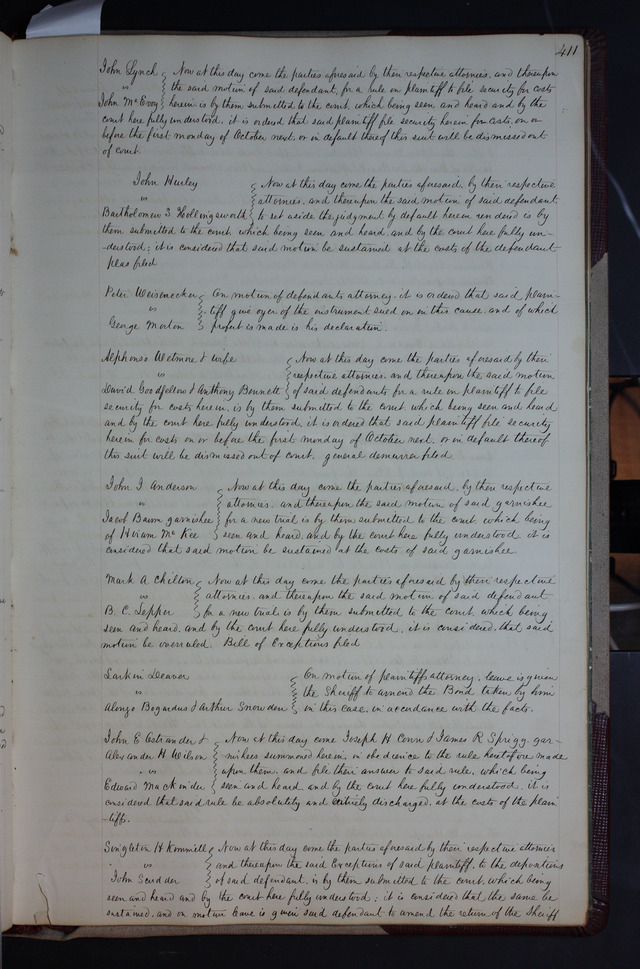 411
John Lynch Now at this day come the parties aforesaid by their respective attornies, and thereupon
vs the said motion of said defendant, for a rule on plaintiff to file security for costs
John McEvoy herein is by them submitted to the court, which being seen and heard and by the
court here fully understood, it is ordered that said plaintiff file security herein for costs, on or
before the first monday of October next, or in default thereof this suit will be dismissed out
of court.
John Hurley Now at this day come the parties aforesaid, by their respective
vs attornies, and thereupon the said motion of said defendant
Bartholomew S Hollingsworth to set aside the judgment by default herein rendered is by
them submitted to the court, which being seen and heard, and by the court here fully un-
derstood; it is considered that said motion be sustained at the costs of the defendant
pleas filed
Peter Weisenecker On motion of defendants attorney, it is ordered that said plain-
vs tiff give oyer of the instrument sued on in this cause, and of which
George Morton profert is made is his declaration.
Alphonso Wetmore & wife Now at this day come the parties aforesaid by their
vs respective attornies, and thereupon the said motion
David Goodfellow & Anthony Bennett of said defendants for a rule on plaintiff to file
security for costs herein, is by them submitted to the court which being seen and heard
and by the court here fully understood, it is ordered that said plaintiff file security
herein for costs on or before the first monday of October next, or in default thereof
this suit will be dismissed out of court. general demurrer filed
John J. Anderson Now at this day come the parties aforesaid, by their respective
vs attornies, and thereupon the said motion of said garnishee
Jacob Baum garnishee for a new trial is by them submitted to the court which being
of Hiram McKee seen and heard, and by the court here fully understood it is
considered that said motion be sustained at the costs of said garnishee
Mark A Chilton Now at this day come the parties aforesaid by their respective
vs attornies, and thereupon the said motion of said defendant
B. C. Lepper for a new trial is by them submitted to the court, which being
seen and heard, and by the court here fully understood, it is considered, that said
motion be overruled. Bill of Exceptions filed
Larkin Deaver On motion of plaintiffs attorney, leave is given
vs the Sheriff to amend the Bond taken by him
Alonzo Bogardus & Arthur Snowden in this case, in accordance with the facts.
John E Ostrander & Now at this day come Joseph H Conn & James R Sprigg, gar-
Alexander H Wilson nishees summoned herein, in obedience to the rule heretofore made
vs upon them, and file their answer to said rule, which being
Edward Mackinder seen and heard and by the court here fully understood, it is
considered that said rule be absolutely and entirely discharged, at the costs of the plain
tiffs.
Singleton H Kimmell Now at this day come the parties aforesaid by their respective attornies
vs and thereupon the said Exceptions of said plaintiff, to the depositions
John Scudder of said defendant, is by them submitted to the court, which being
seen and heard and by the court here fully understood; it is considered that the same be
sustained, and on motion leave is given said defendant to amend the return of the Sheriff